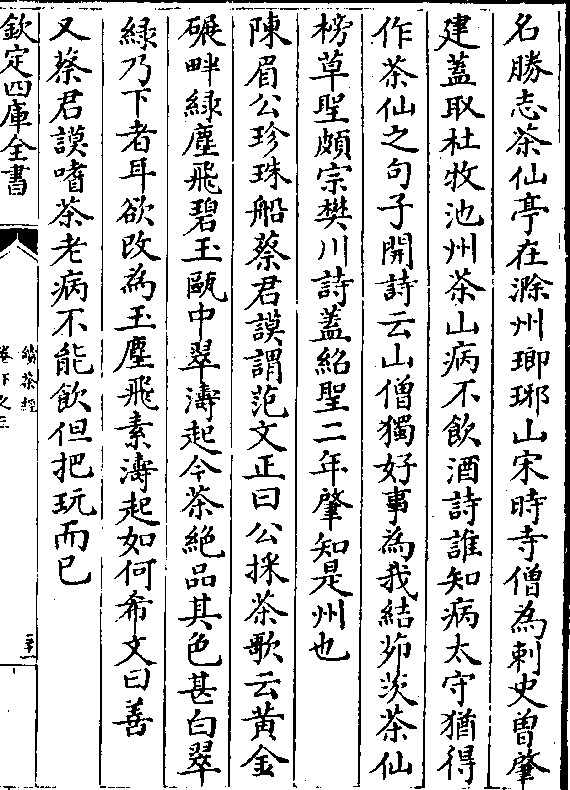 名勝志茶仙亭在滁州琅琊山宋時寺僧為刺史曾肇
建蓋取杜牧池州茶山病不飲酒詩誰知病太守猶得
作茶仙之句子開詩云山僧獨好事為我結茆茨茶仙
榜草聖頗宗樊川詩蓋紹聖二年肇知是州也
陳眉公珍珠船蔡君謨謂范文正曰公採茶歌云黄金
碾畔緑塵飛碧玉甌中翠濤起今茶絶品其色甚白翠
緑乃下者耳欲改為玉塵飛素濤起如何希文曰善
又蔡君謨嗜茶老病不能飲但把玩而已
欽定四庫全書
續茶經
卷下之三